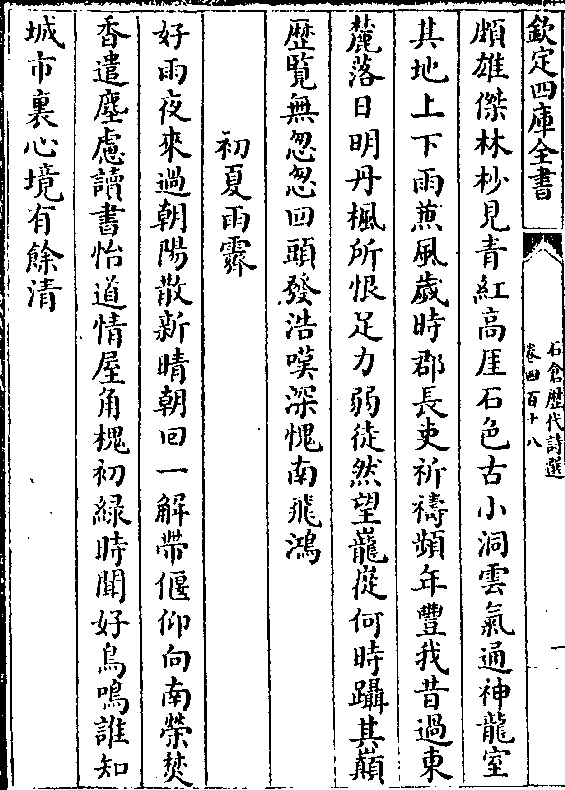 欽定四庫全書
石倉歴代詩選
卷四百十八
頗雄傑林杪見青紅高厓石色古小洞雲氣通神龍室
其地上下雨蒸風歲時郡長吏祈禱頻年豐我昔過東
麓落日明丹楓所恨足力弱徒然望巃嵸何時躡其巔
歴覧無怱怱回頭發浩嘆深愧南飛鴻
初夏雨霽
好雨夜來過朝陽散新晴朝回一解帶偃仰向南榮焚
香遣塵慮讀書怡道情屋角槐初緑時聞好鳥鳴誰知
城市裏心境有餘清